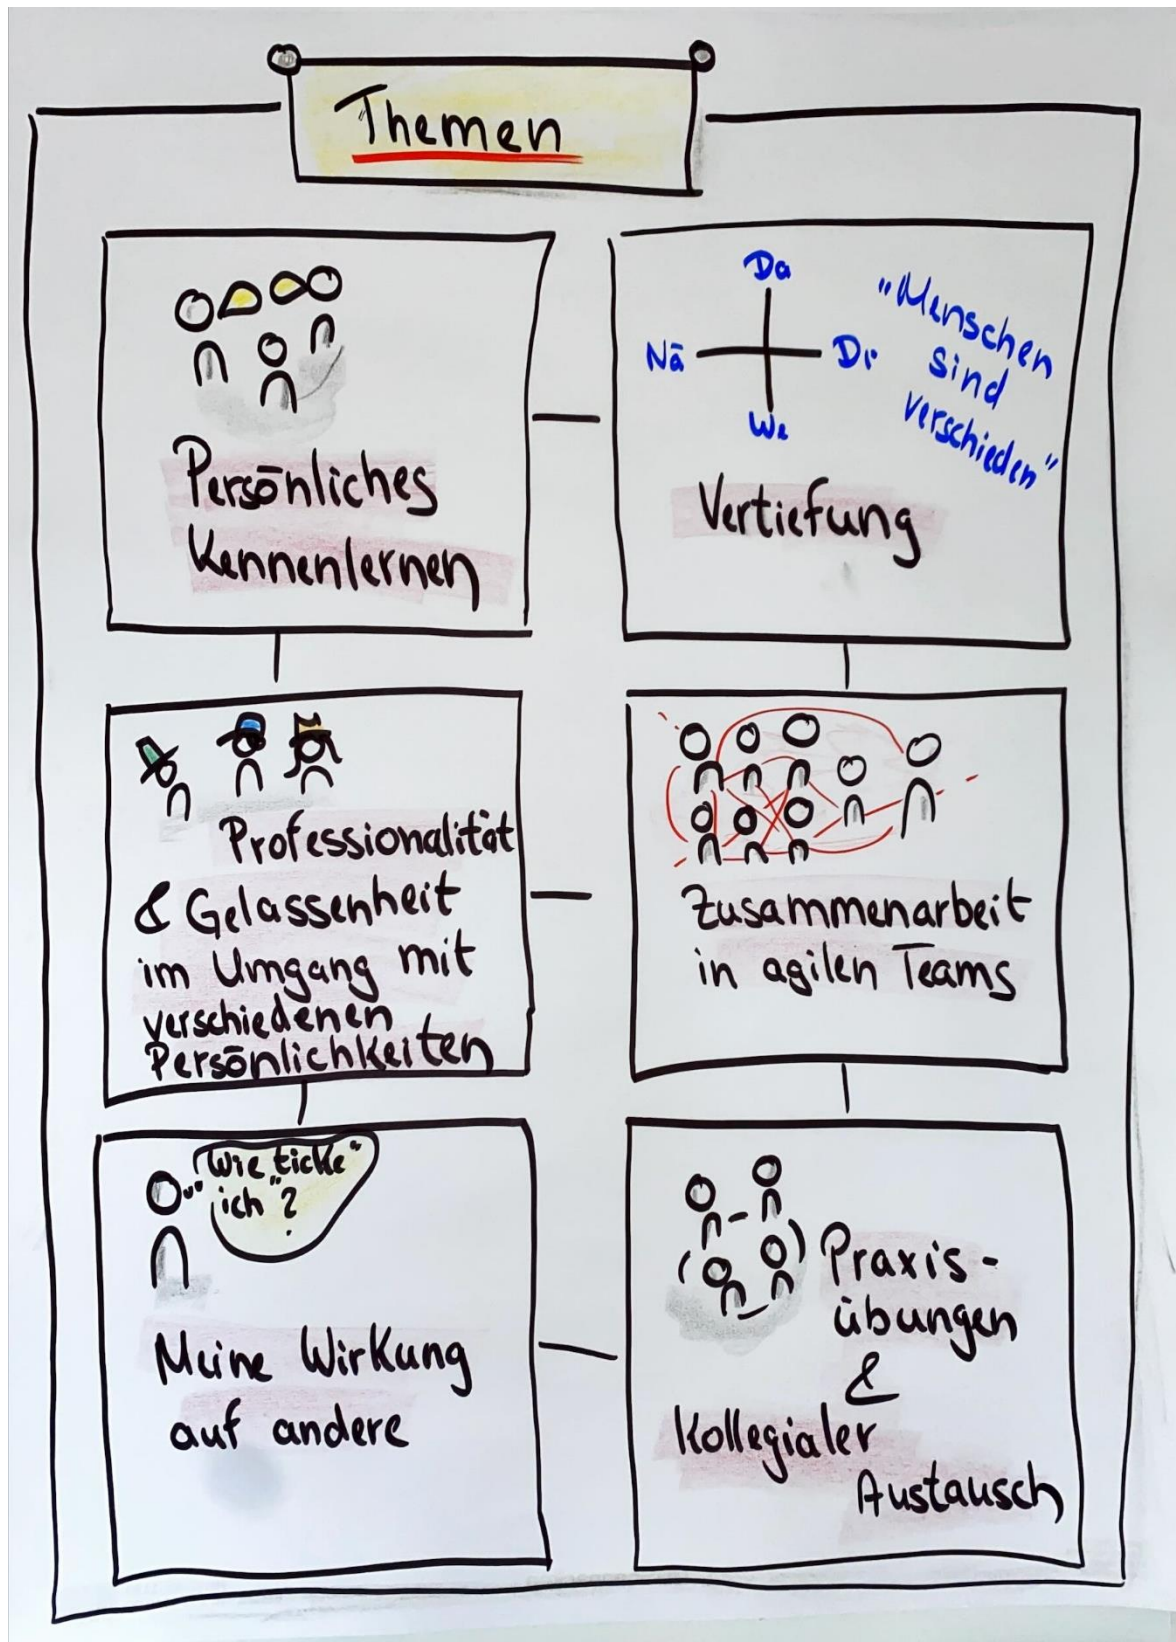 Themen
Persönliches
Kennenlernen
Da
Nä
Di
We
"Menschen
sind
verschieden"
Vertiefung
Professionalität
& Gelassenheit
im Umgang mit
verschiedenen
Persönlichkeiten
Zusammenarbeit
in agilen Teams
"Wie ticke"
ich"?
Meine Wirkung
auf andere
Praxis-
übungen
&
Kollegialer
Austausch